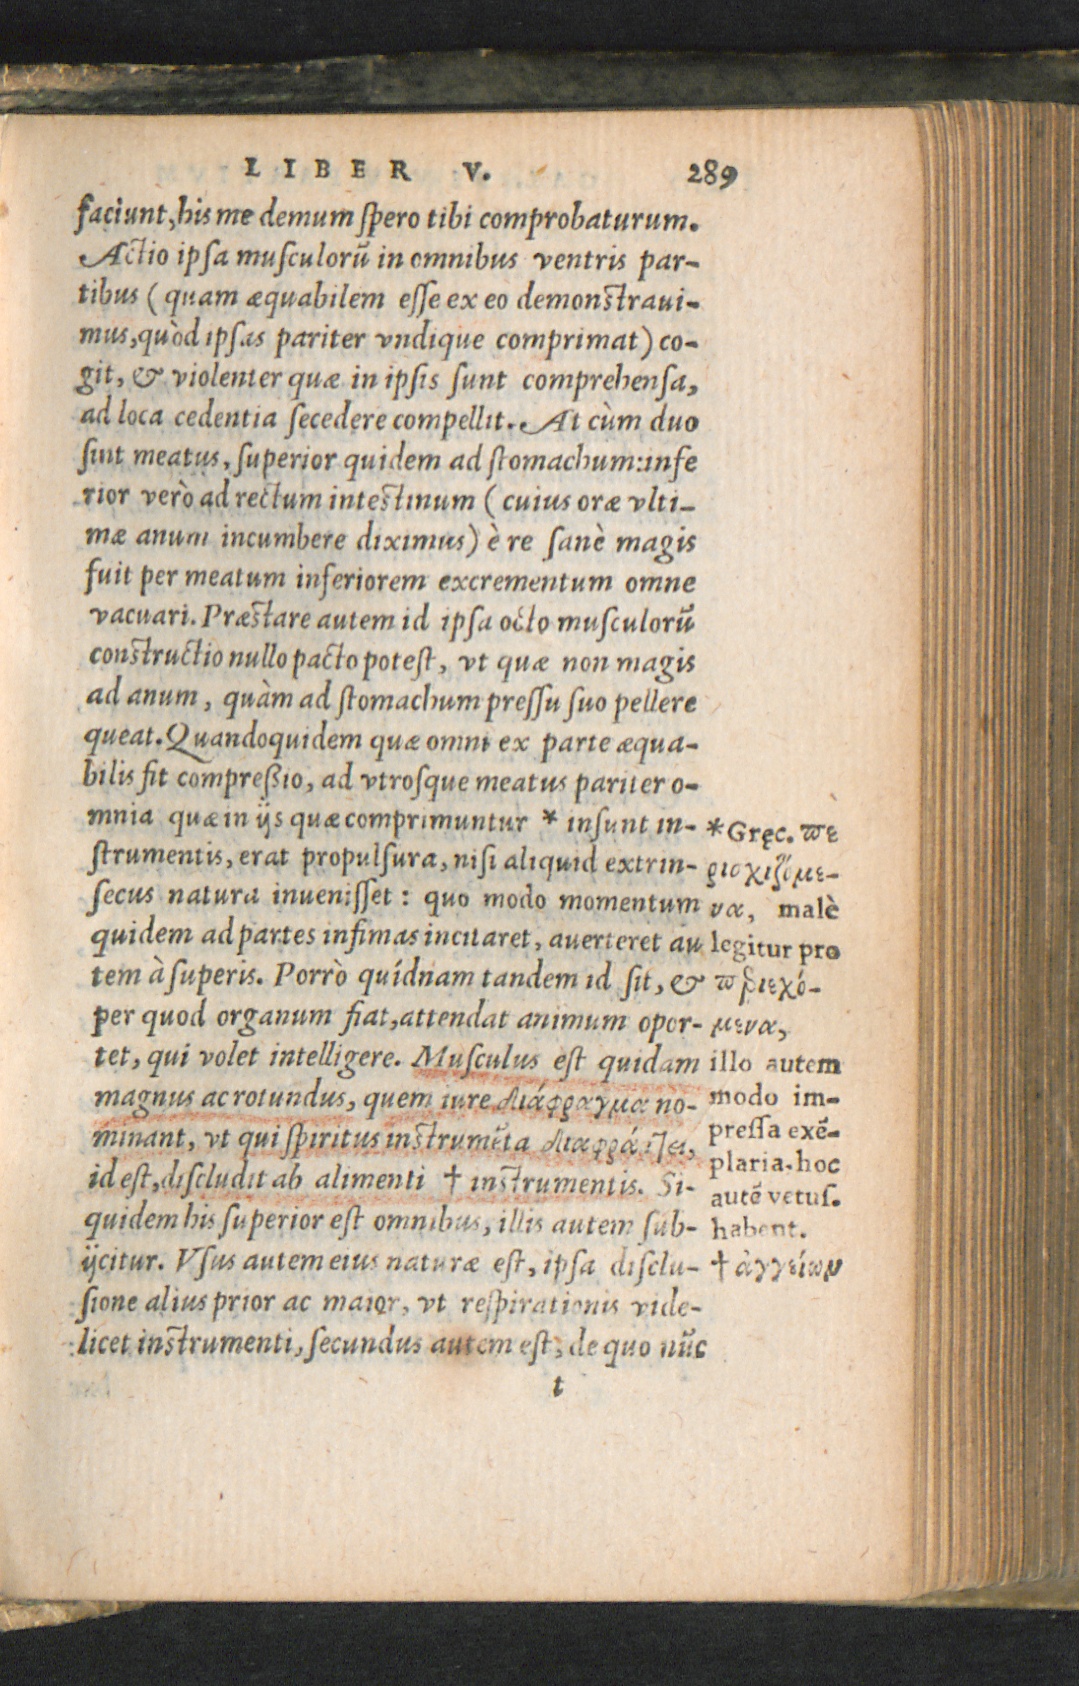 LIBER V. 289
faciunt, his me demum ſpero tibi comprobaturum.
Actio ipſa muſculorũ in omnibus ventris par-
tibus (quam æquabilem eſſe ex eo demonſtraui-
mus, quòd ipſas pariter vndique comprimat) co-
git, & violenter quæ in ipſis ſunt comprehenſa,
ad loca cedentia ſecedere compellit. At cùm duo
ſint meatus, ſuperior quidem ad ſtomachum: infe
rior verò ad rectum inteſtinum (cuius oræ vlti-
mæ anum incumbere diximus) è re ſanè magis
fuit per meatum inferiorem excrementum omne
vacuari. Præſtare autem id ipſa octo muſculorũ
conſtructio nullo pacto poteſt, vt quæ non magis
ad anum, quàm ad ſtomachum preſſu ſuo pellere
queat. Quandoquidem quæ omni ex parte æqua-
bilis fit compreßio, ad vtroſque meatus pariter o-
mnia quæ in ijs quæ comprimuntur * inſunt in-
ſtrumentis, erat propulſura, niſi aliquid extrin-
ſecus natura inueniſſet: quo modo momentum
quidem ad partes infimas incitaret, auerteret au
tem à ſuperis. Porrò quídnam tandem id ſit, &
per quod organum fiat, attendat animum opor-
tet, qui volet intelligere. Muſculus eſt quidam
magnus ac rotundus, quem iure διάφραγμα no-
minant, vt qui ſpiritus inſtrumẽta διαφράτ̃ει,
id eſt, diſcludit ab alimenti † inſtrumentis. Si-
quidem his ſuperior eſt omnibus, illis autem ſub-
ijcitur. Vſus autem eius naturæ eſt, ipſa diſclu-
ſione alius prior ac maior, vt reſpirationis vide-
licet inſtrumenti, ſecundus autem eſt, de quo nũc
t
* Gręc. πε
ρισχιζόμε-
να, malè
legitur pro
περιεχό-
μενα,
illo autem
modo im-
preſſa exẽ-
plaria. hoc
autẽ vetuſ.
habent.
† ἀγγείων